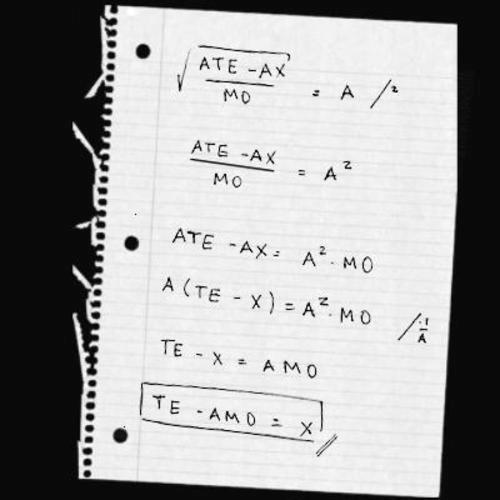 √(ATE - AX / MO) = A /²
ATE - AX / MO = A²
ATE - AX = A² · MO
A (TE - X) = A² · MO /· 1/A
TE - X = AMO
TE - AMO = X //